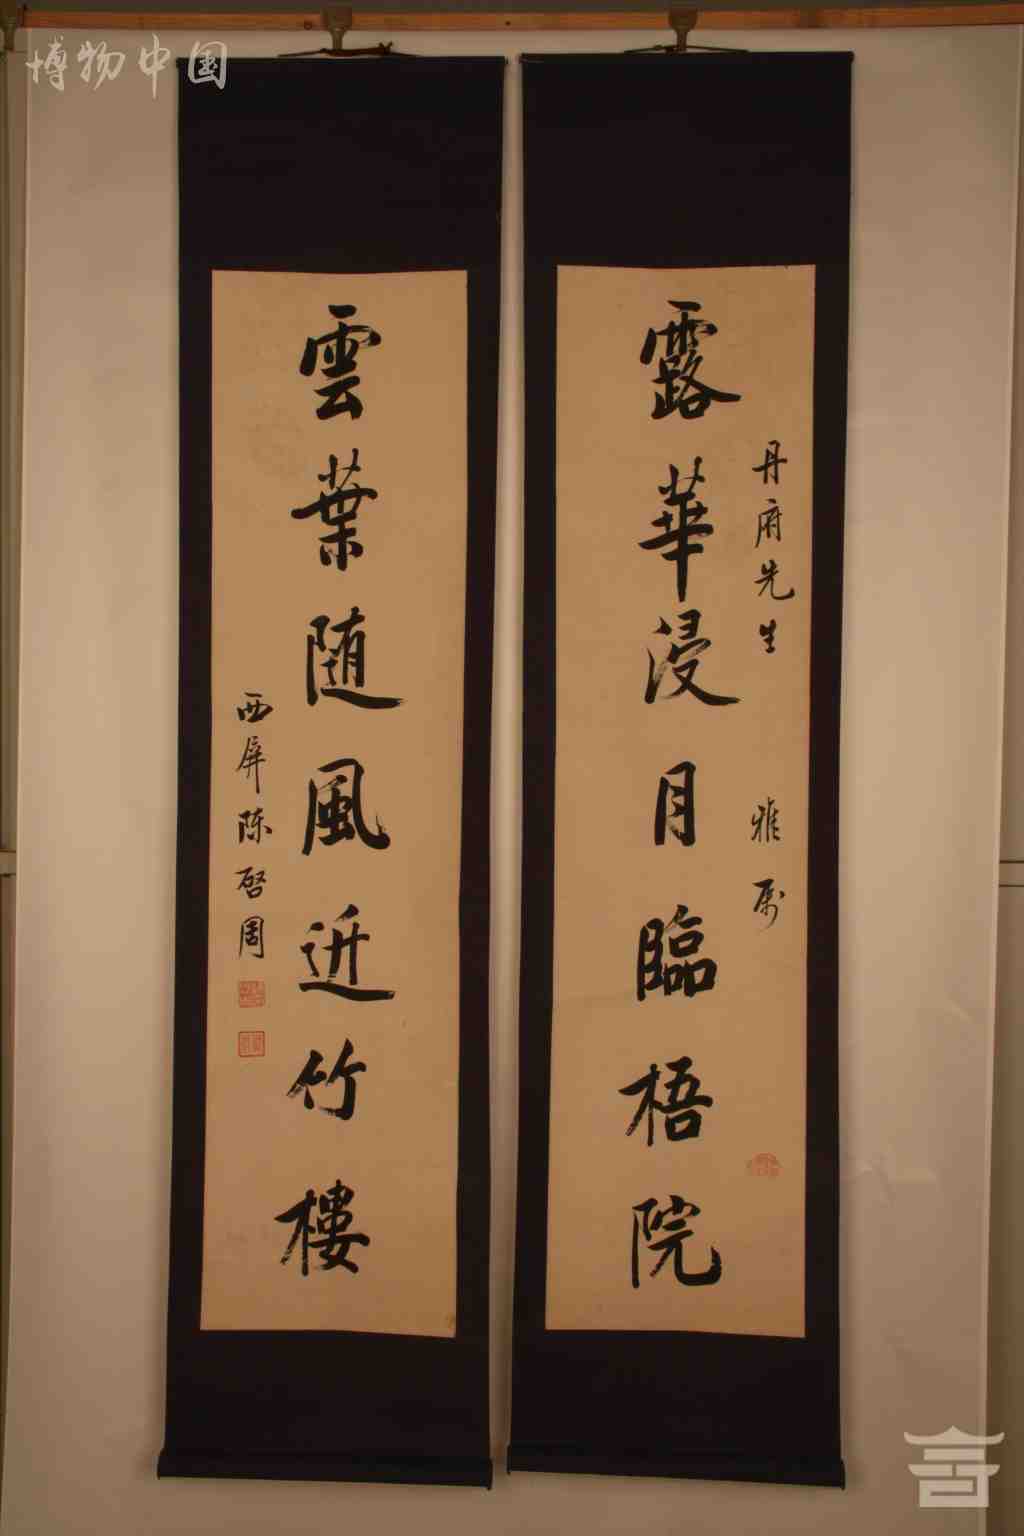 博物中国
丹府先生 雅属
露華浸月臨梧院
雲葉随風近竹樓
西屏陈啓周